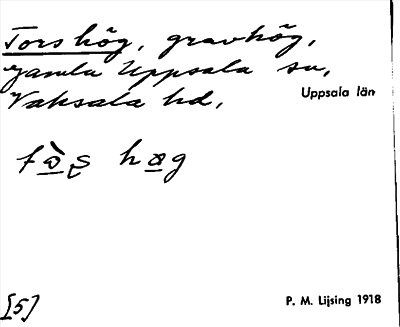 Tors hög, gravhög,
Gamla Uppsala sn,
Vaksala hd,
Uppsala län
[5]
P. M. Lijsing 1918